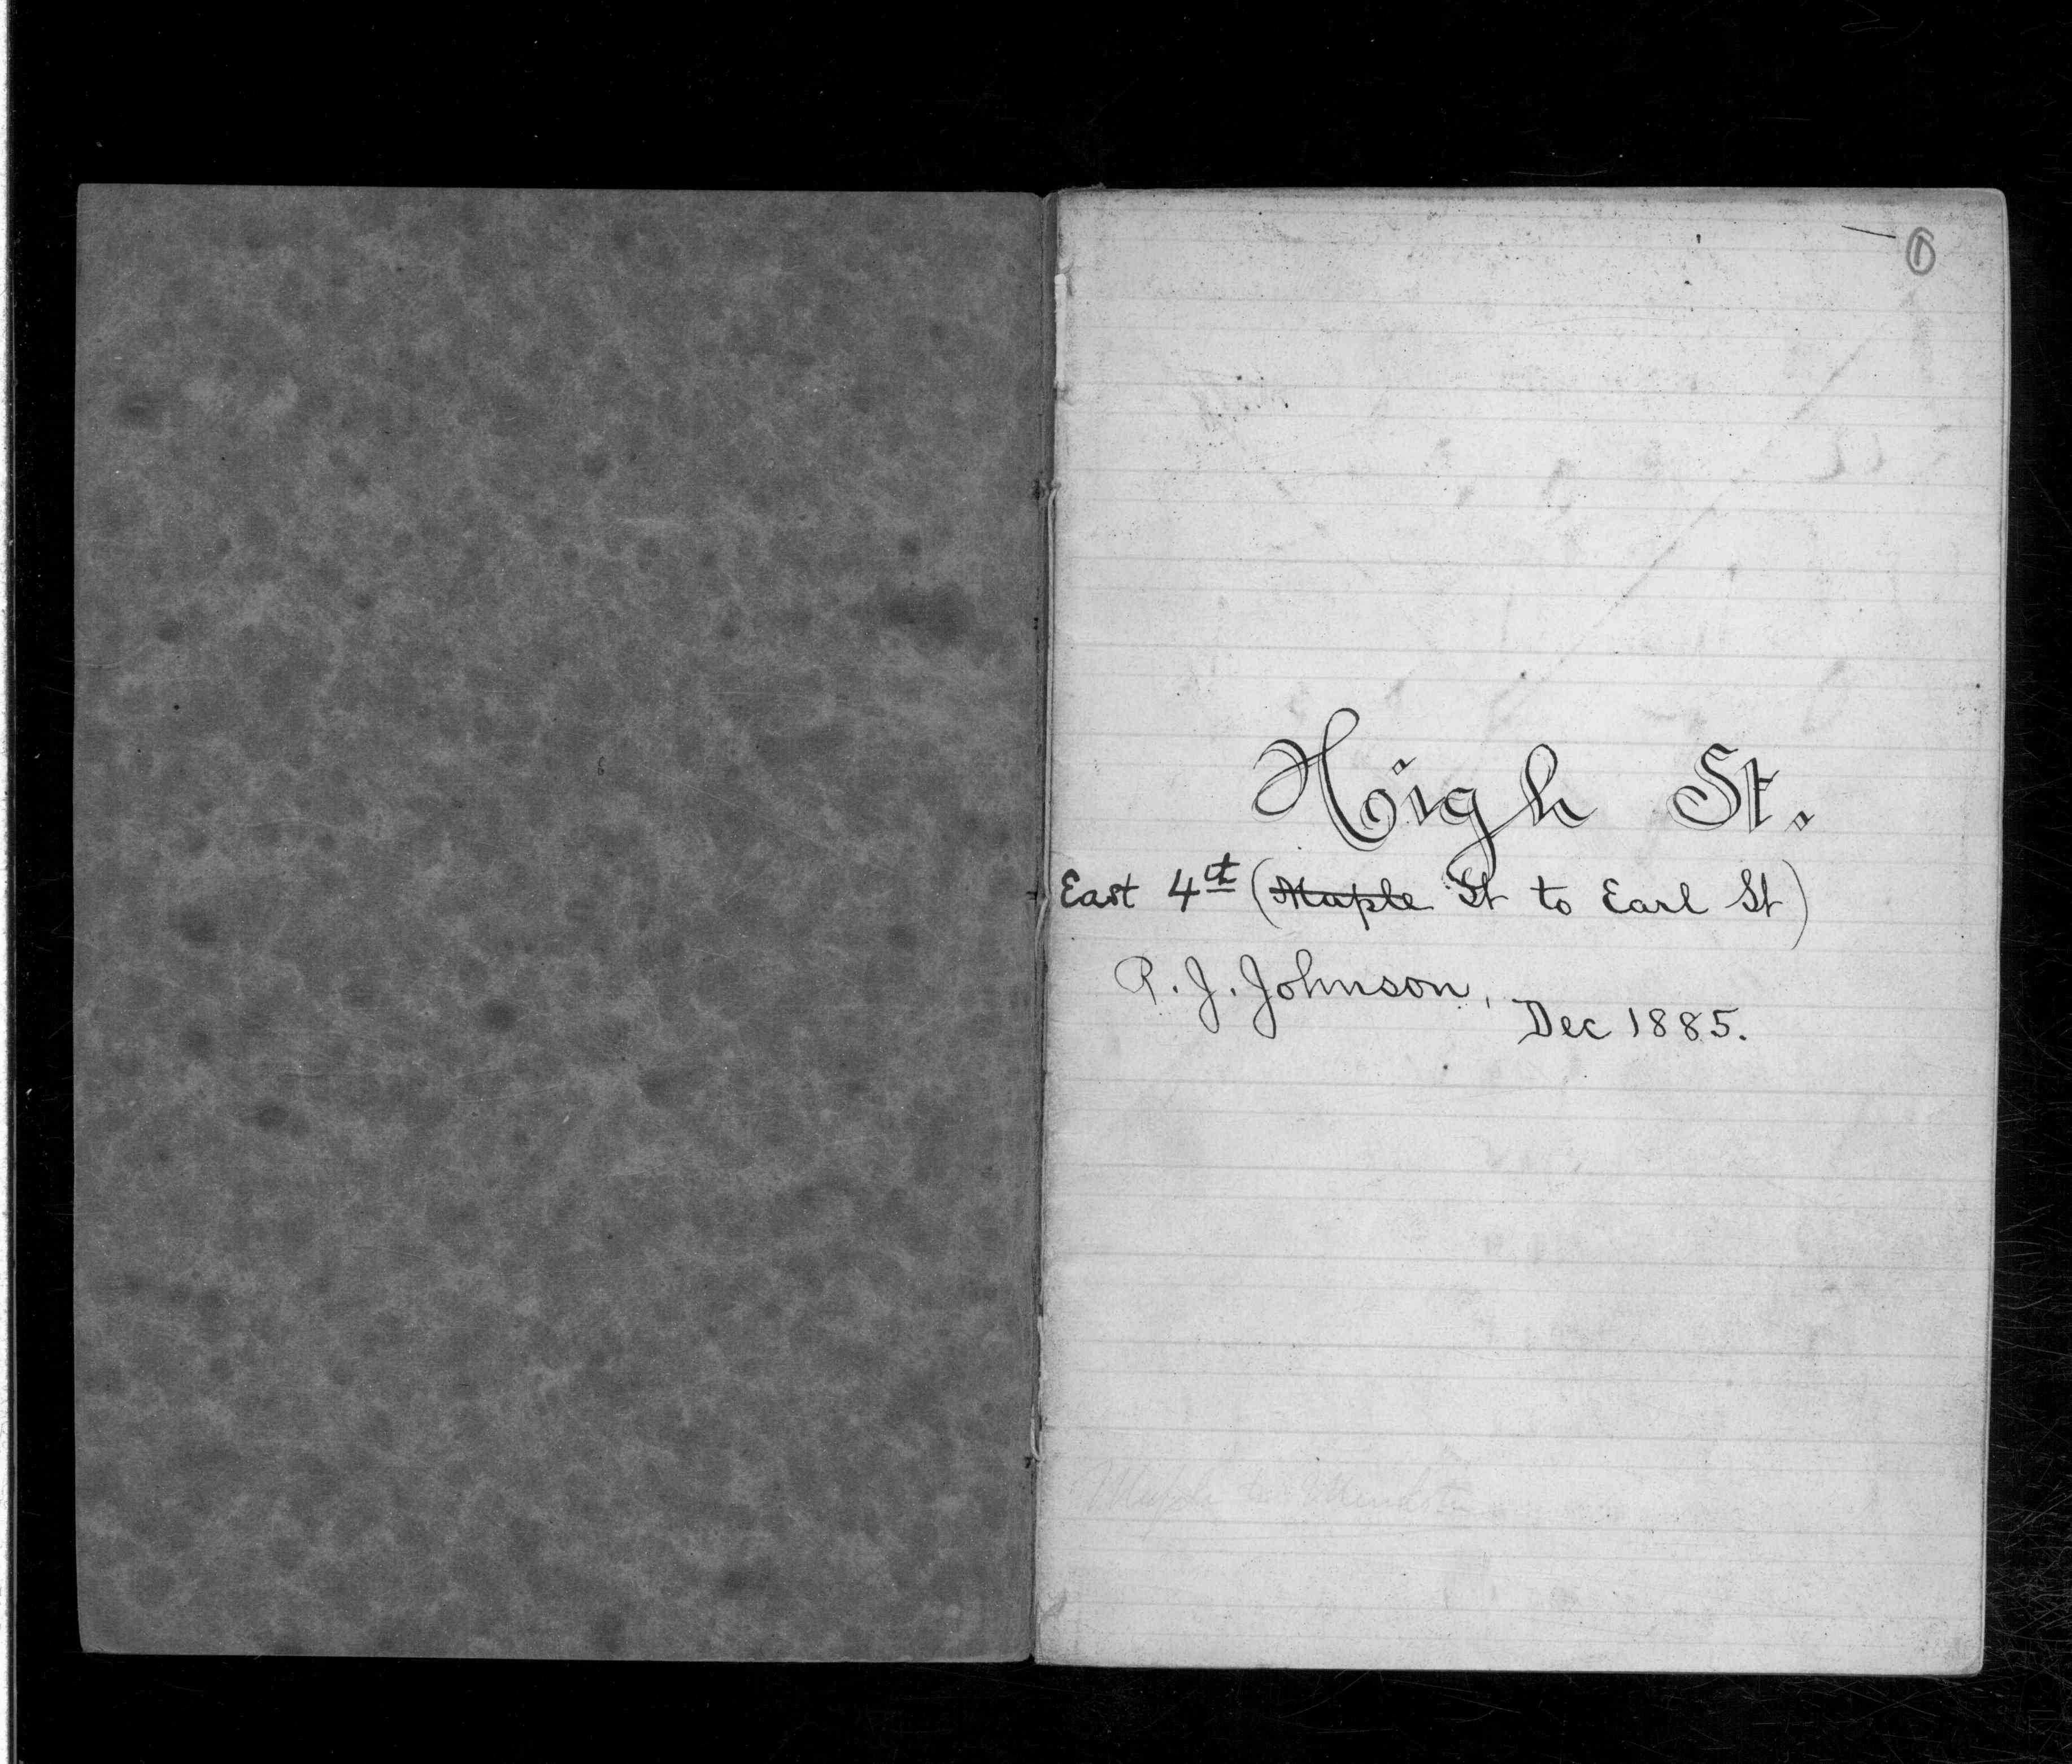 1
High St.
East 4th (Maple St to Earl St)
P. J. Johnson,
Dec 1885.
Maple to Mendota